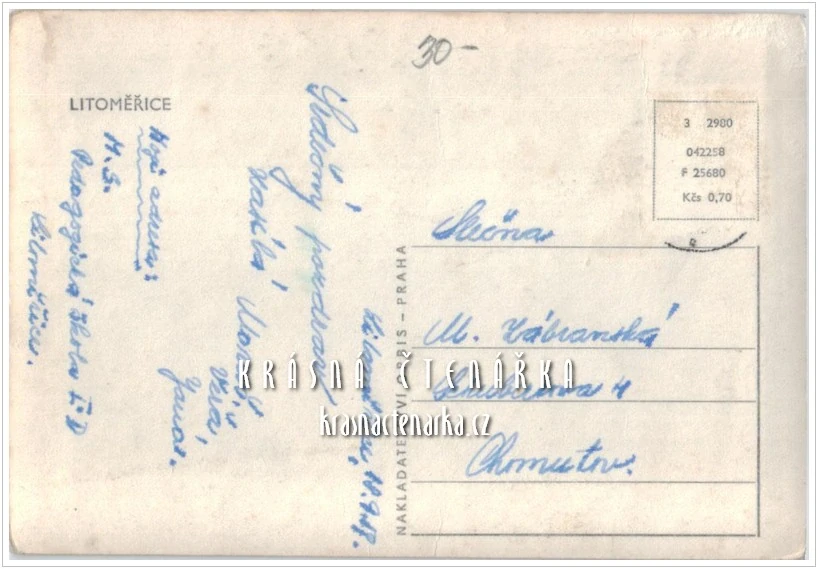 30-
LITOMĚŘICE
Moje adresa:
M. J.
Pedagogická škola I. D
Litoměřice.
Srdečný pozdrav
zasílá
Jana.
Litoměřice, 18.9.58.
NAKLADATELSTVÍ ORBIS – PRAHA
3 2980
042258
F 25680
Kčs 0,70
Slečna
M. Zábranská
4
Chomutov.
KRÁSNÁ ČTENÁŘKA
krasnactenarka.cz